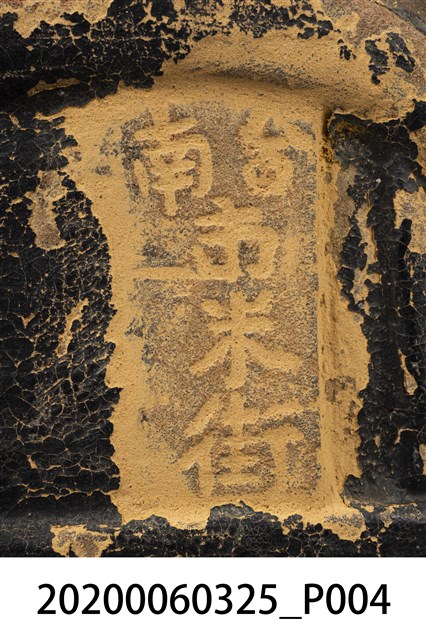 台南
市米街
20200060325_P004